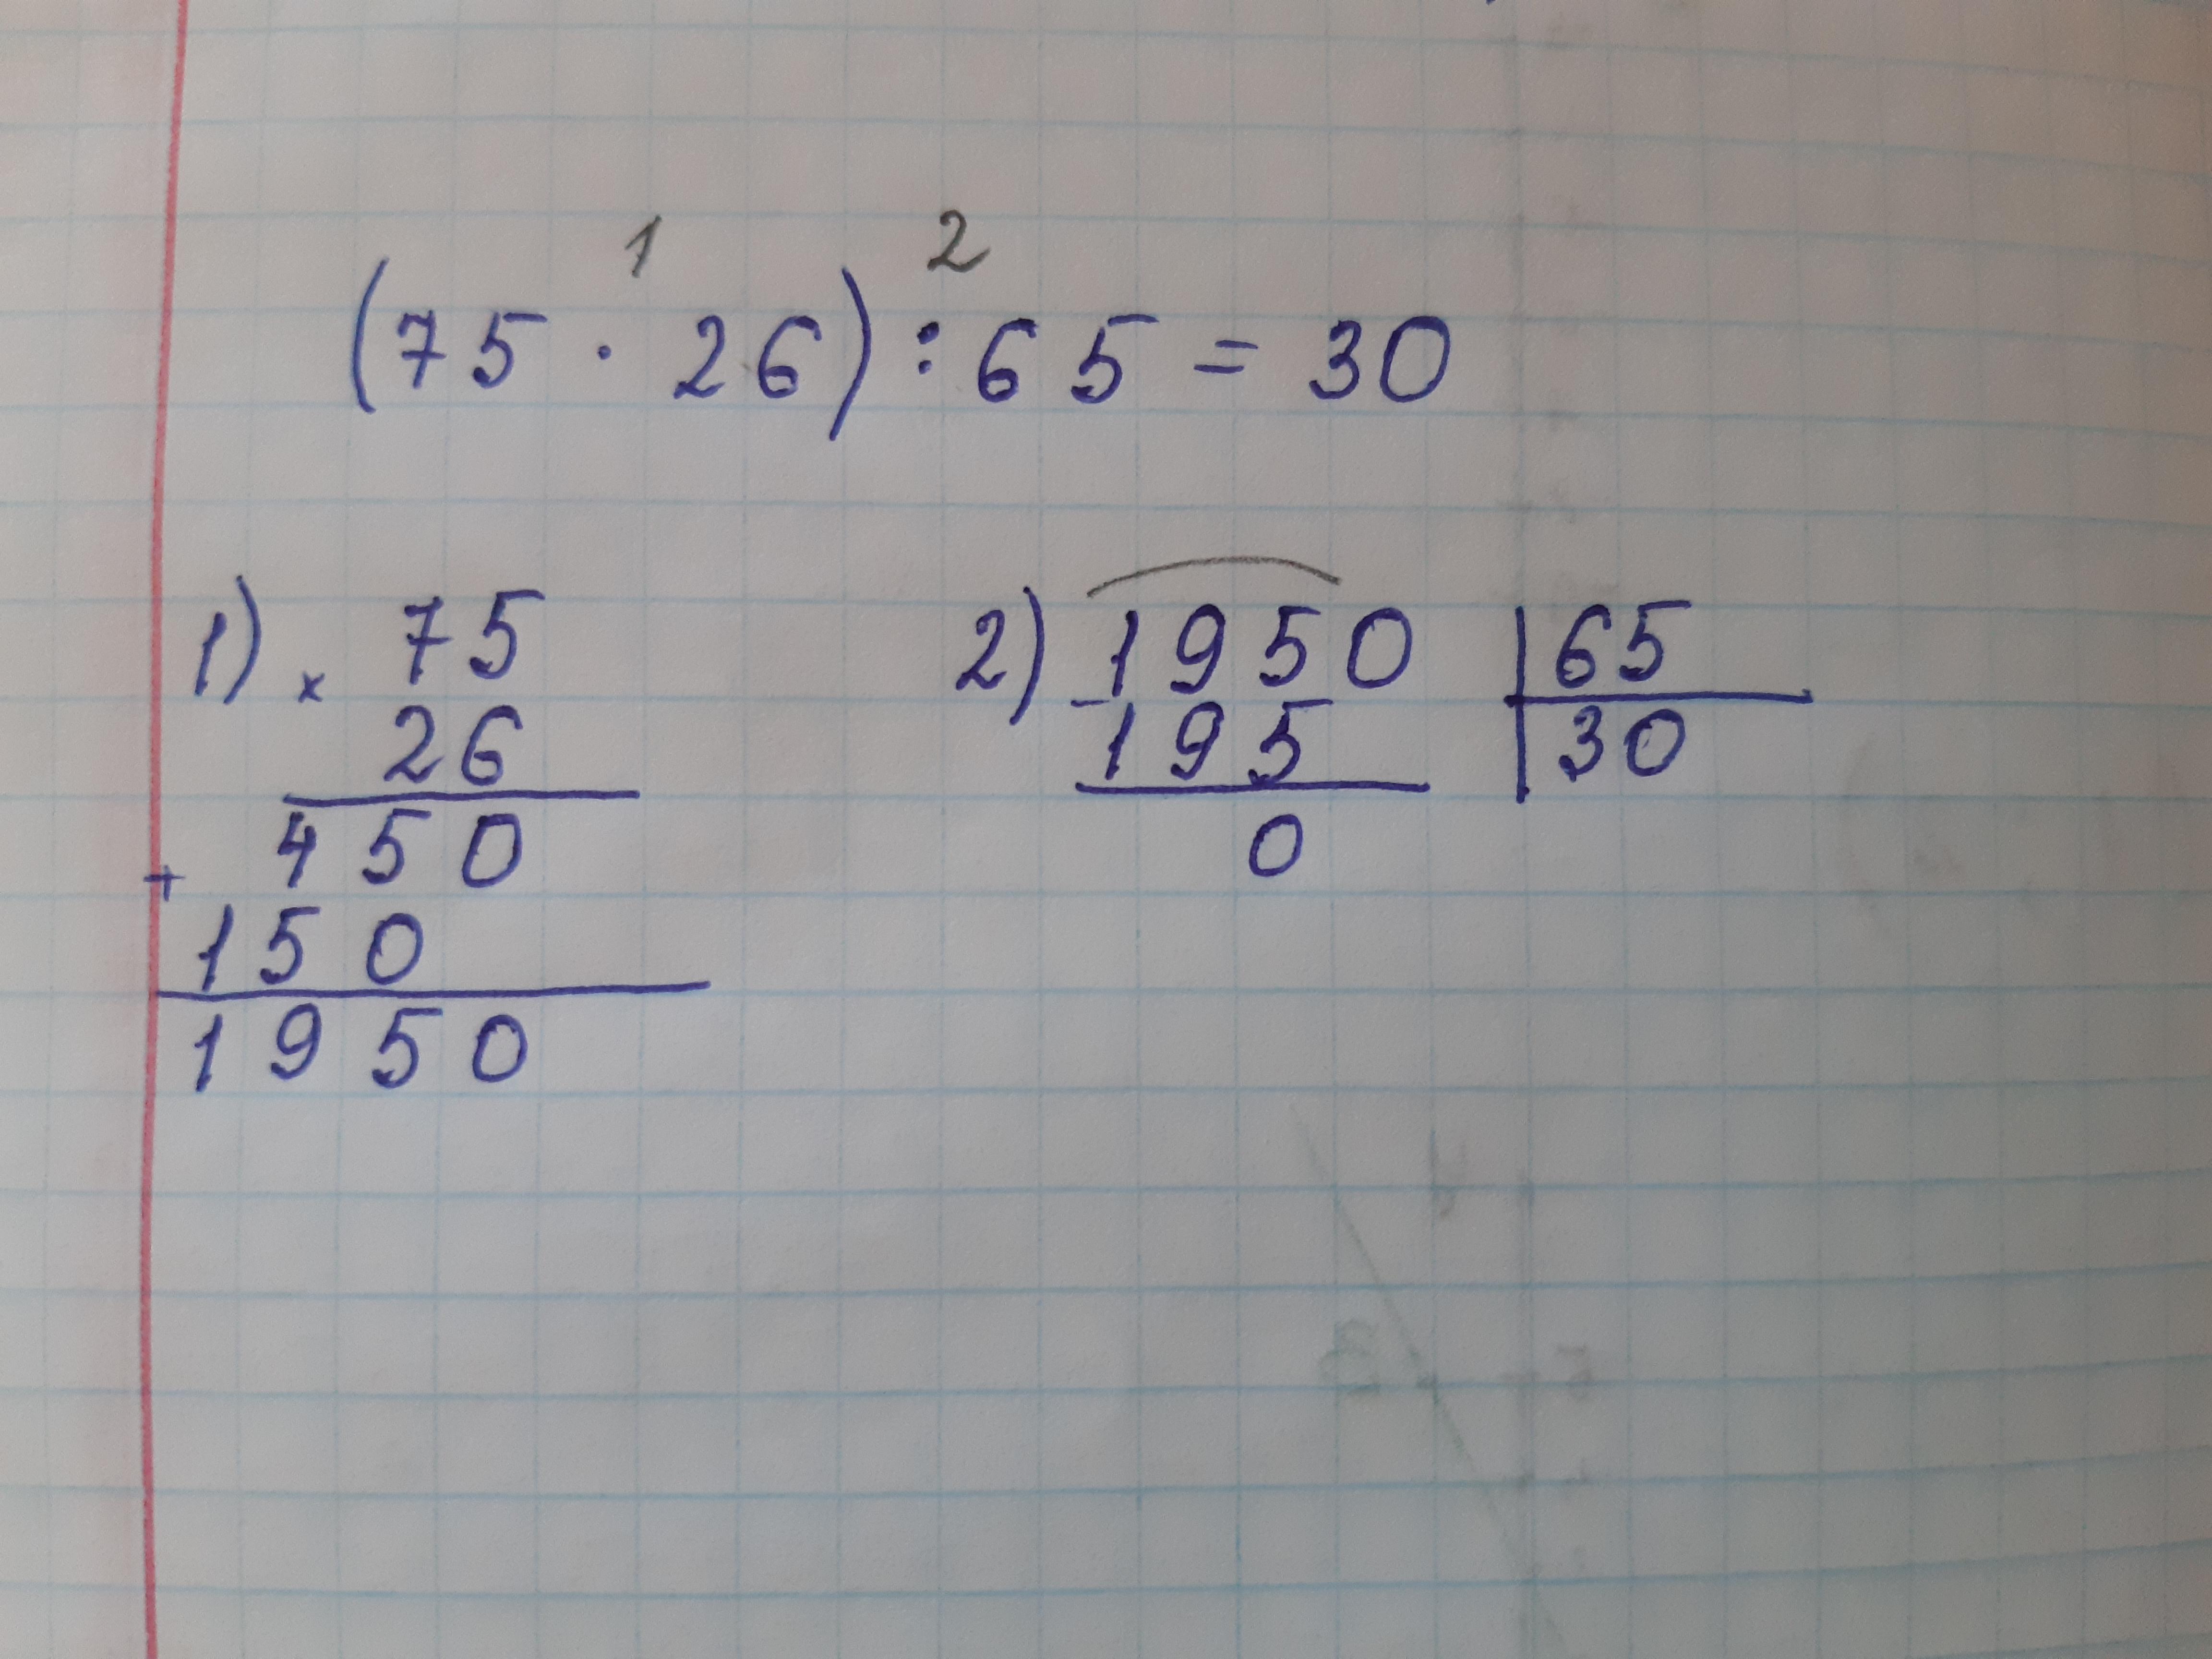 1 2
(75 · 26) : 65 = 30
1) × 75
26
450
+
150
1950
2) 1950 | 65
- 195 | 30
0